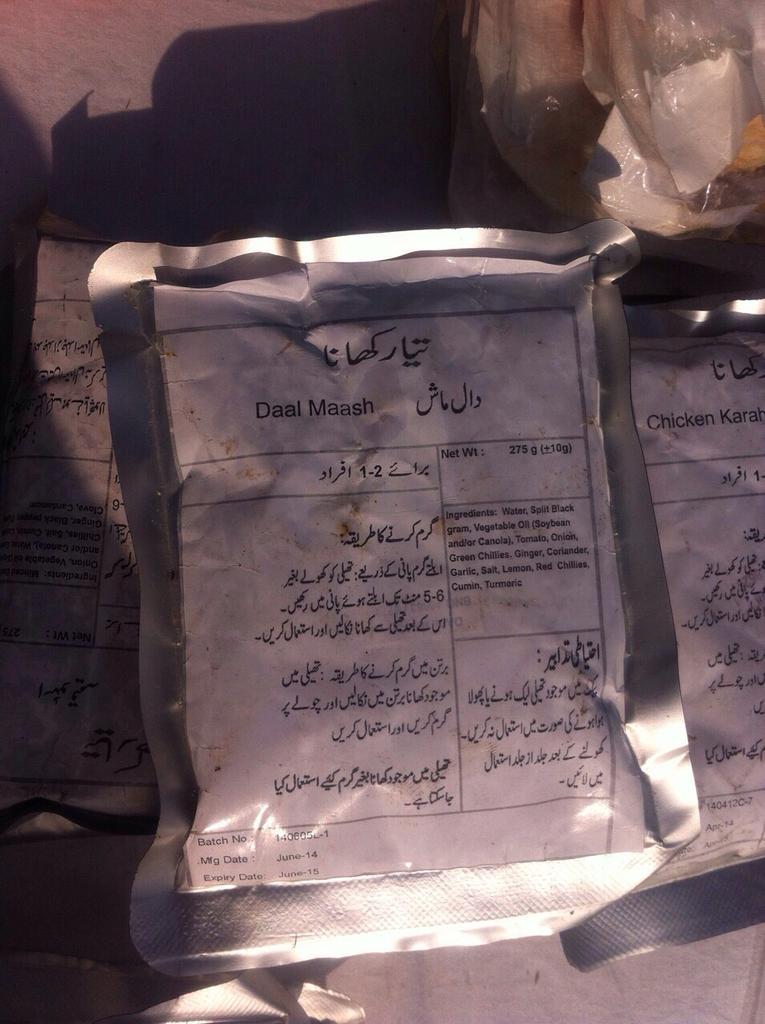 تیار کھانا
Daal Maash دال ماش
برائے 2-1 افراد
Net Wt : 275 g (±10g)
Ingredients: Water, Split Black
gram, Vegetable Oil (Soybean
and/or Canola), Tomato, Onion,
Green Chillies, Ginger, Coriander,
Garlic, Salt, Lemon, Red Chillies,
Cumin, Turmeric
گرم کرنے کا طریقہ:
ابلتے گرم پانی کے ذریعے: تھیلی کو کھولے بغیر
5-6 منٹ تک ابلتے ہوئے پانی میں رکھیں۔
اس کے بعد تھیلی سے کھانا نکالیں اور استعمال کریں۔
برتن میں گرم کرنے کا طریقہ: تھیلی میں
موجود کھانا برتن میں نکالیں اور چولہے پر
گرم کریں اور استعمال کریں
تھیلی میں موجود کھانا بغیر گرم کیئے استعمال کیا
جا سکتا ہے۔
احتیاطی تدابیر:
پیک میں موجود تھیلی لیک ہونے یا پھولا
ہوا ہونے کی صورت میں استعمال نہ کریں۔
کھولنے کے بعد جلد از جلد استعمال
میں لائیں۔
Batch No.: 140605L-1
Mfg Date : June-14
Expiry Date: June-15
کھانا
Chicken Karah
افراد
140412C-7
Apr-14
Net Wt : 275
Ingredients: Minced
Onion, Vegetable oil
and/or Canola),
Chillies, Salt, Cumin,
Ginger, Black pepper
Clove, Cardamom